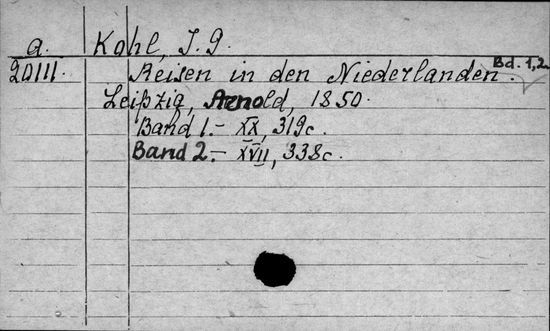 a. Kohl, J. G.
20111. Reisen in den Niederlanden. Bd. 1,2
Leipzig, Arnold, 1850.
Band 1.- XX, 319c.
Band 2.- XVII, 338c.